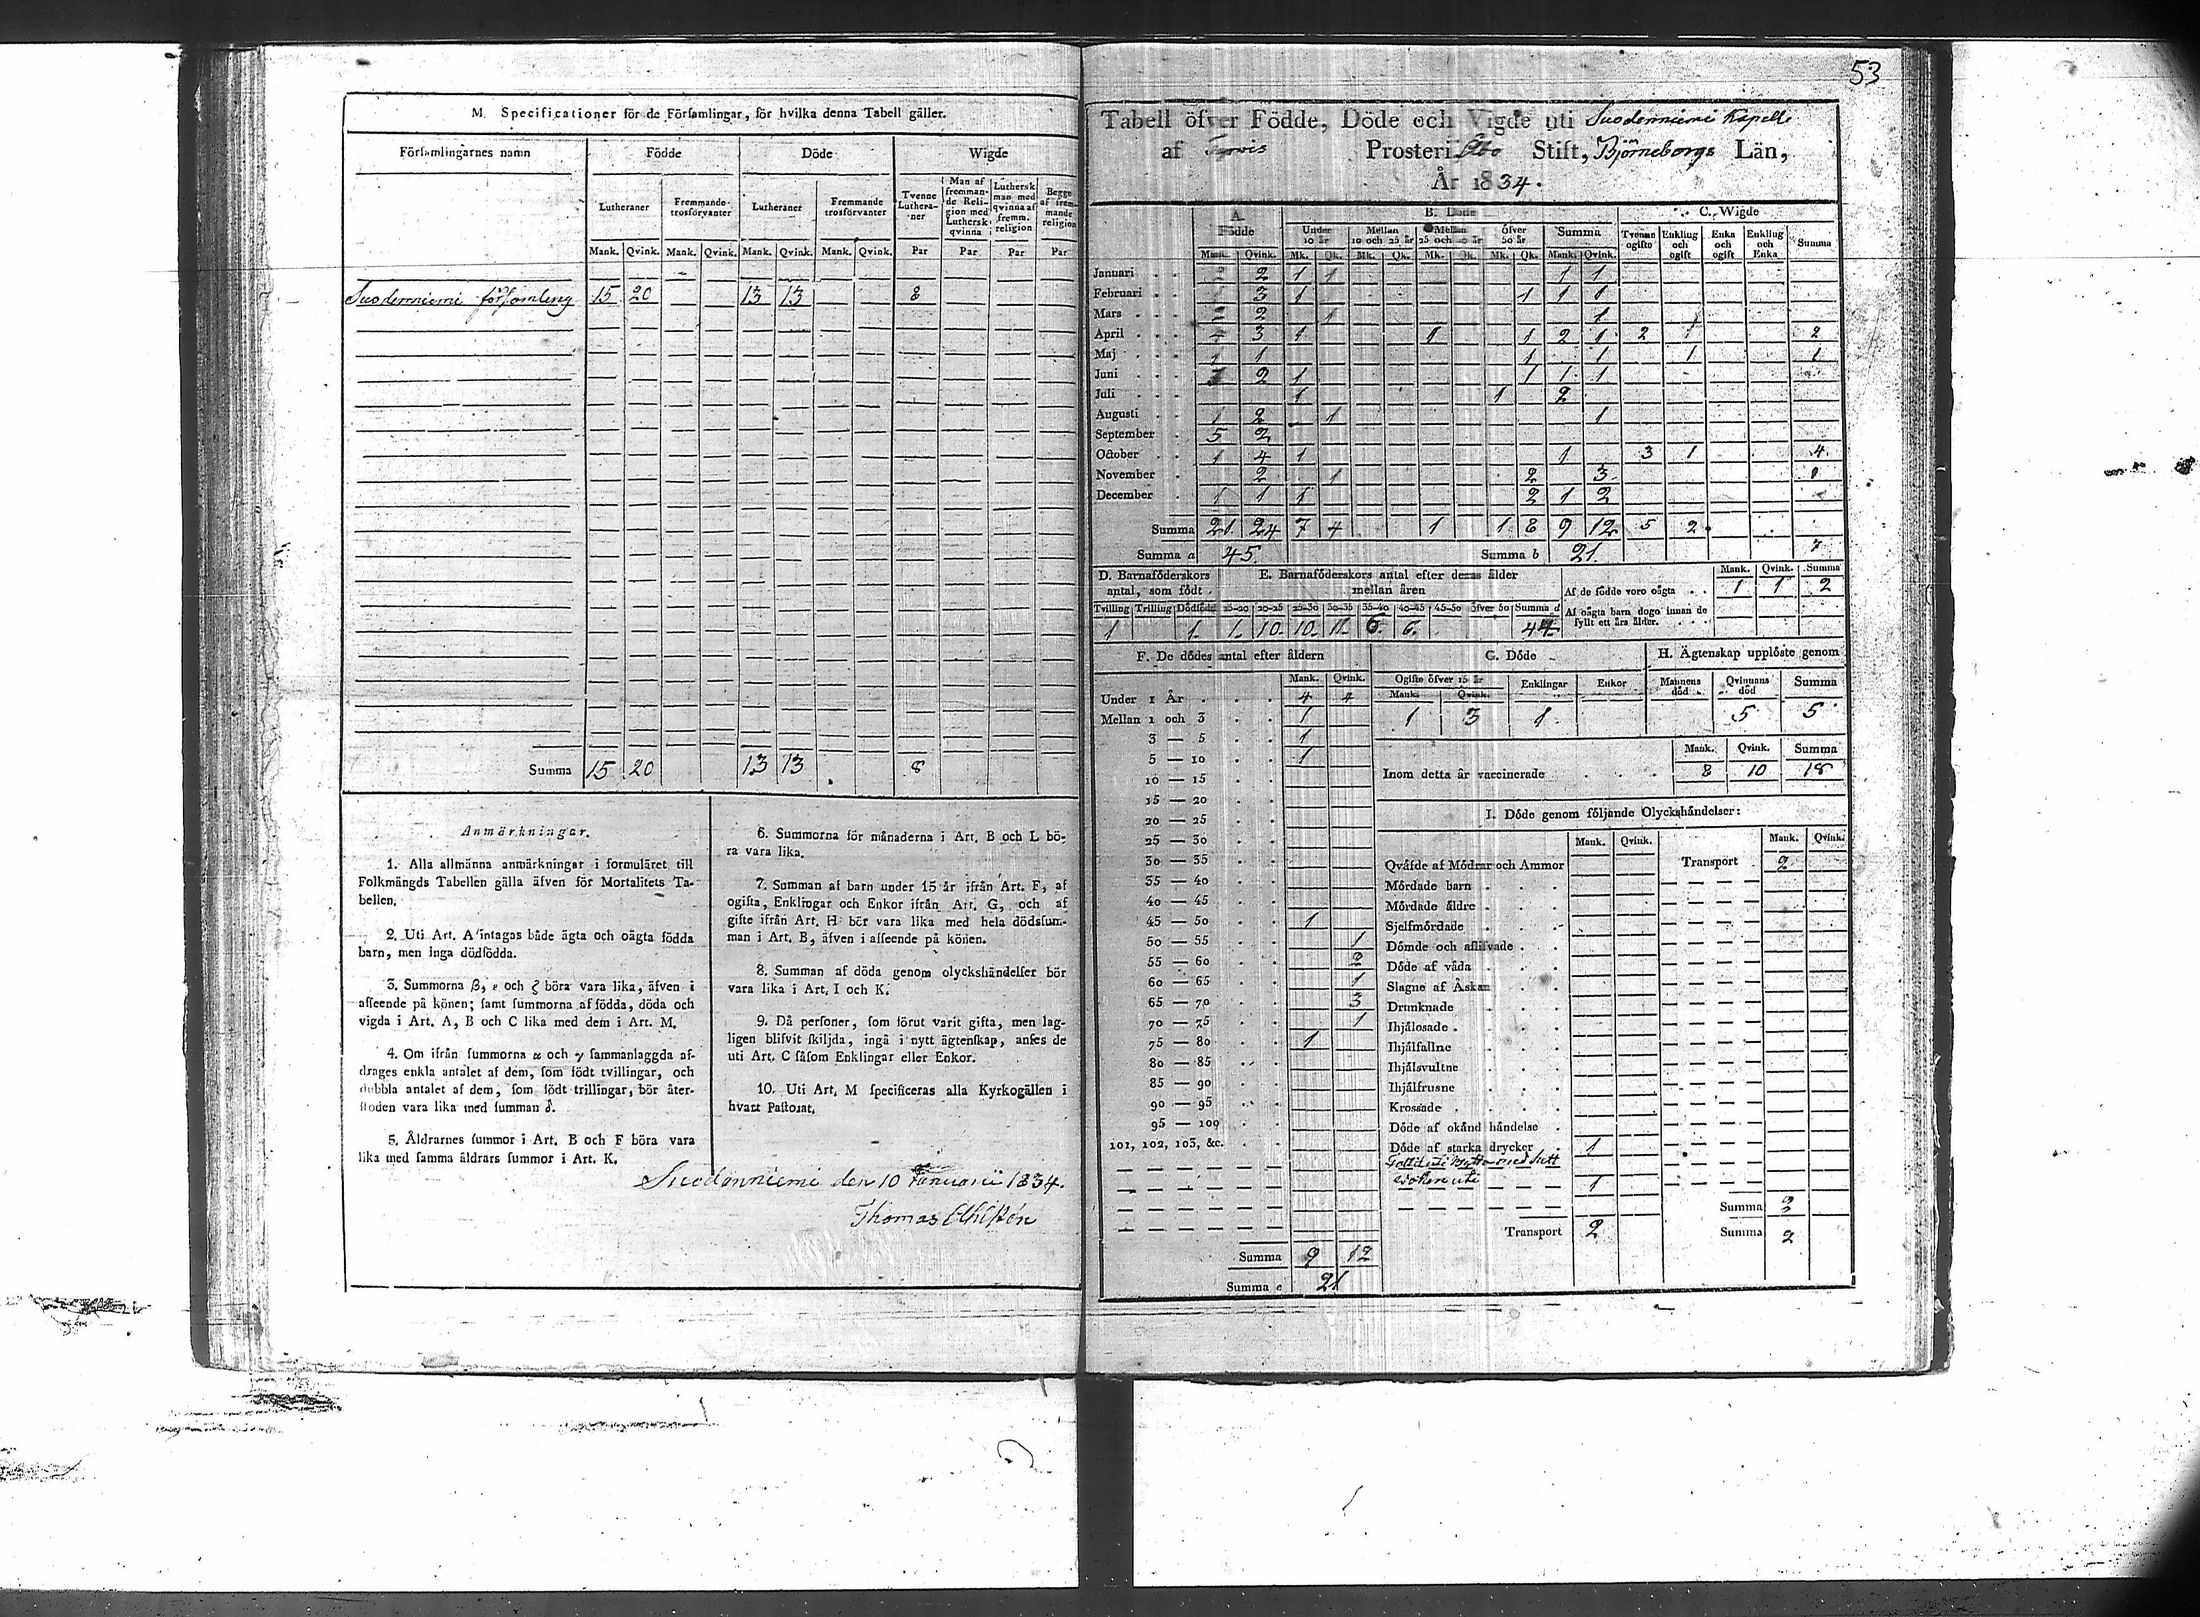 M. Specificationer för de Församlingar, för hvilka denna Tabell gäller.
Församlingarnes namn Födde Döde Wigde
Lutheraner Fremmande trosförvanter Lutheraner Fremmande trosförvanter Tvenne Lutheraner Man af fremmande Religion med Luthersk qvinna Luthersk man med qvinna af fremm. religion Begge af fremmande religion
Mank. Qvink. Mank. Qvink. Mank. Qvink. Mank. Qvink. Par Par Par Par
Suodenniemi församling 15 20 13 13 8
Summa 15 20 13 13 8
Anmärkningar.
1. Alla allmänna anmärkningar i formuläret till
Folkmängds Tabellen gälla äfven för Mortalitets Ta-
bellen.
2. Uti Art. A intagas både ägta och oägta födda
barn, men inga dödfödda.
3. Summorna β, ε och ζ böra vara lika, äfven i
afseende på könen; samt summorna af födda, döda och
vigda i Art. A, B och C lika med dem i Art. M.
4. Om ifrån summorna α och γ sammanlaggda af-
drages enkla antalet af dem, som födt tvillingar, och
dubbla antalet af dem, som födt trillingar, bör åter-
stoden vara lika med summan δ.
5. Åldrarnes summor i Art. B och F böra vara
lika med samma åldrars summor i Art. K.
6. Summorna för månaderna i Art. B och L bö-
ra vara lika.
7. Summan af barn under 15 år ifrån Art. F, af
ogifta, Enklingar och Enkor ifrån Art. G, och af
gifte ifrån Art. H bör vara lika med hela dödssum-
man i Art. B, äfven i afseende på könen.
8. Summan af döda genom olyckshändelser bör
vara lika i Art. I och K.
9. Då personer, som förut varit gifta, men lag-
ligen blifvit skiljda, ingå i nytt ägtenskap, anses de
uti Art. C såsom Enklingar eller Enkor.
10. Uti Art. M specificeras alla Kyrkogällen i
hvart Pastorat.
Suodenniemi den 10 Januarii 1834.
Thomas
53
Tabell öfver Födde, Döde och Vigde uti Suodenniemi Kapell
af Tyrvis Prosteri Åbo Stift, Björneborgs Län,
År 1834.
A. Födde B. Döde C. Wigde
Under 10 år Mellan 10 och 25 år Mellan 25 och 50 år öfver 50 år Summa Tvenne ogifte Enkling och ogift Enka och ogift Enkling och Enka Summa
Mank. Qvink. Mk. Qk. Mk. Qk. Mk. Qk. Mk. Qk. Mank. Qvink.
Januari 2 2 1 1 1 1
Februari 1 3 1 1 1 1
Mars 2 2 1 1
April 4 3 1 1 1 2 1 2 2
Maj 1 1 1 1 1 1
Juni 3 2 1 1 1 1
Juli 1 1 2
Augusti 1 2 1 1
September 5 2
October 1 4 1 1 3 1 4
November 2 1 2 3
December 1 1 1 2 1 2
Summa 21 24 7 4 1 1 8 9 12 5 2
Summa a 45. Summa b 21. 7
D. Barnaföderskors antal, som födt E. Barnaföderskors antal efter deras ålder mellan åren
Mank. Qvink. Summa
Af de födde voro oägta 1 1 2
Af oägta barn dogo innan de fyllt ett års ålder.
Tvilling Trilling Dödfödt 15-20 20-25 25-30 30-35 35-40 40-45 45-50 öfver 50 Summa d
1 1. 1. 10. 10. 11. 6. 6. 44.
F. De dödes antal efter åldern
Mank. Qvink.
Under 1 År 4 4
Mellan 1 och 3 1
3 — 5 1
5 — 10 1
10 — 15
15 — 20
20 — 25
25 — 30
30 — 35
35 — 40
40 — 45
45 — 50 1
50 — 55 1
55 — 60 2
60 — 65 1
65 — 70 3
70 — 75 1
75 — 80 1
80 — 85
85 — 90
90 — 95
95 — 100
101, 102, 103, &c.
Summa 9 12
Summa e 21
G. Döde H. Ägtenskap upplöste genom
Ogifte öfver 15 år Enklingar Enkor Mannens död Qvinnans död Summa
Mank. Qvink.
1 3 1 5 5
Mank. Qvink. Summa
Inom detta år vaccinerade 8 10 18
I. Döde genom följande Olyckshändelser:
Mank. Qvink. Mank. Qvink.
Qväfde af Mödrar och Ammor Transport 2
Mördade barn
Mördade äldre
Sjelfmördade
Dömde och aflifvade
Döde af våda
Slagne af Åskan
Drunknade
Ihjälosade
Ihjälfallne
Ihjälsvultne
Ihjälfrusne
Krossade
Döde af okänd händelse
Döde af starka drycker 1
1
Summa 2
Transport 2 Summa 2